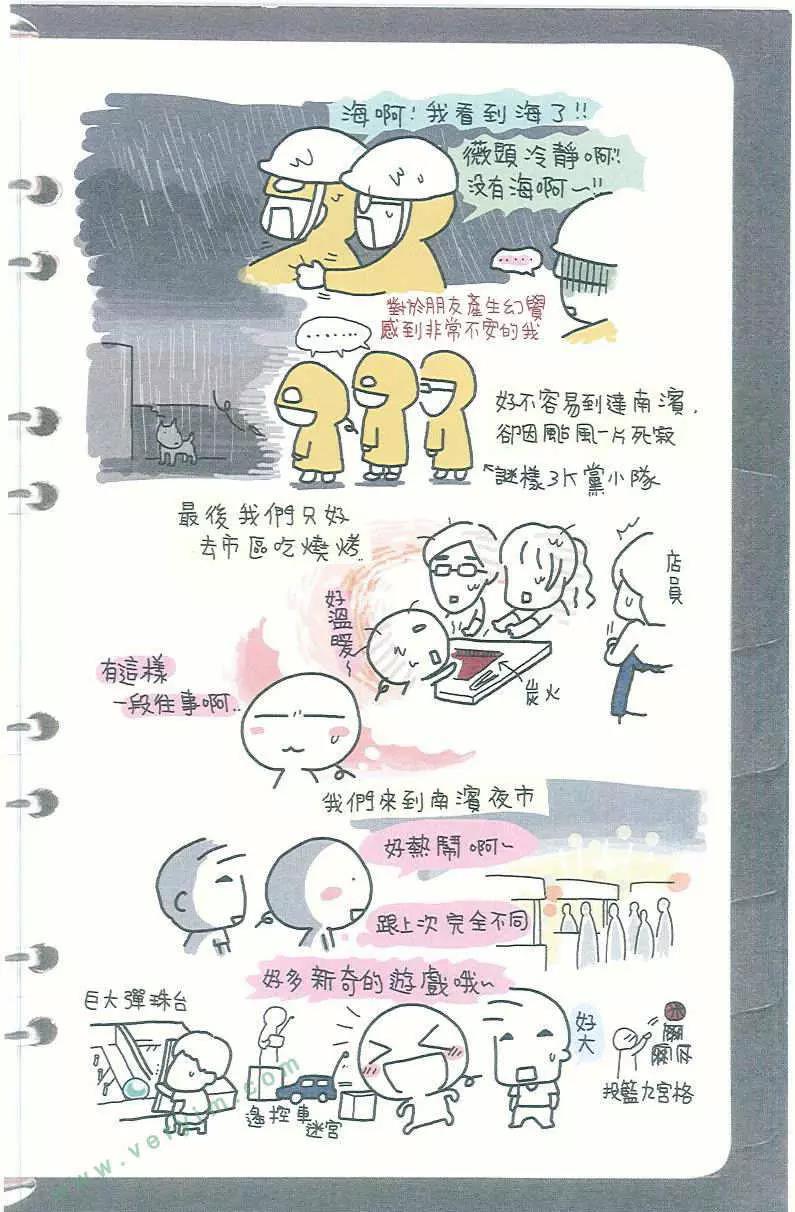 海啊！我看到海了！！
薇頭冷靜啊！！
沒有海啊～！！
......
對於朋友產生幻覺
感到非常不安的我
......
好不容易到達南濱，
卻因颱風一片死寂
謎樣3K黨小隊
最後我們只好
去市區吃燒烤..
店員
好溫暖～
炭火
有這樣
一段往事啊..
我們來到南濱夜市
好熱鬧啊～
跟上次完全不同
好多新奇的遊戲哦～
巨大彈珠台
好大
遙控車
迷宮
投籃九宮格